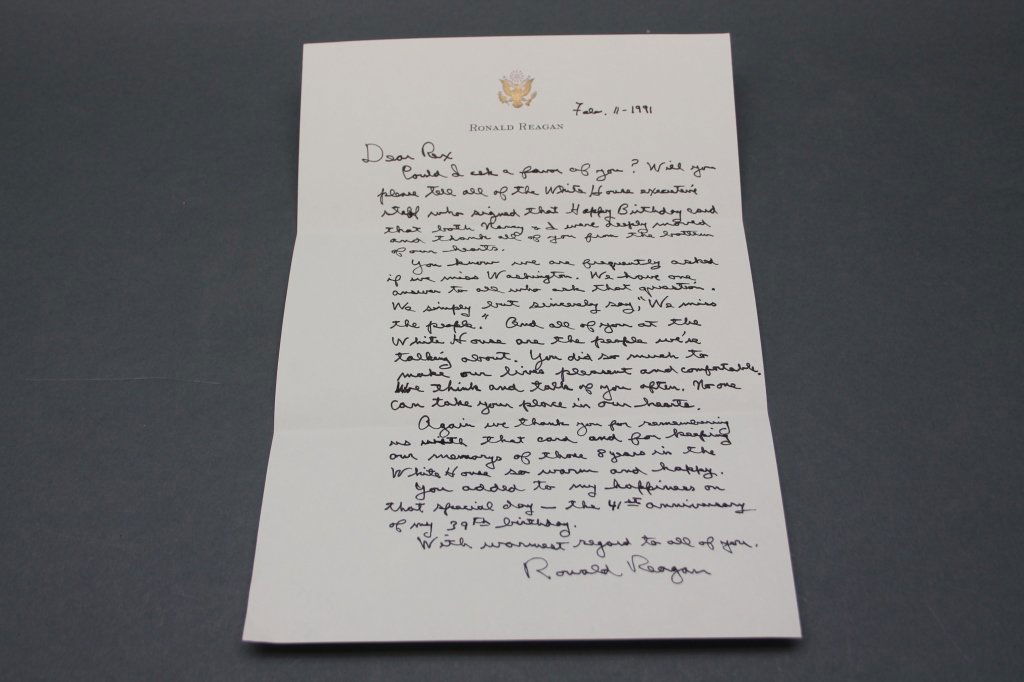 Feb. 11-1991
RONALD REAGAN
Dear Rex
Could I ask a favor of you? Will you
please tell all of the White House executive
staff who signed that Happy Birthday card
that both Nancy & I were deeply moved
and thank all of you from the bottom
of our hearts.
You know we are frequently asked
if we miss Washington. We have one
answer to all who ask that question.
We simply but sincerely say, "We miss
the people." And all of you at the
White House are the people we're
talking about. You did so much to
make our lives pleasant and comfortable.
We think and talk of you often. No one
can take your place in our hearts.
Again we thank you for remembering
us with that card and for keeping
our memorys of those 8 years in the
White House so warm and happy.
You added to my happiness on
that special day — the 41st anniversary
of my 39th birthday.
With warmest regard to all of you.
Ronald Reagan